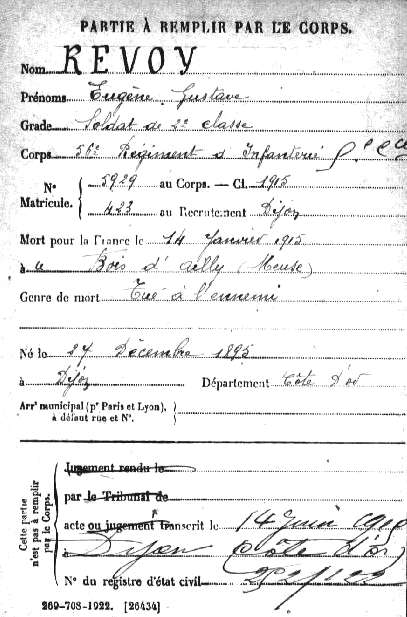 PARTIE À REMPLIR PAR LE CORPS.
Nom REVOY
Prénoms Eugène Gustave
Grade Soldat de 2e classe
Corps 56e Régiment d'Infanterie
No Matricule. 5929 au Corps. — Cl. 1915
423 au Recrutement Dijon
Mort pour la France le 14 Janvier 1915
à Bois d'Ailly (Meuse)
Genre de mort Tué à l'ennemi
Né le 27 Décembre 1895
à Dijon Département Côte D'or
Arrt municipal (pr Paris et Lyon),
à défaut rue et No.
Cette partie n'est pas à remplir par le Corps.
Jugement rendu le
par le Tribunal de
acte ou jugement transcrit le 14 Juin
à Dijon (Côte d'or)
No du registre d'état civil
269-708-1922. [26434]